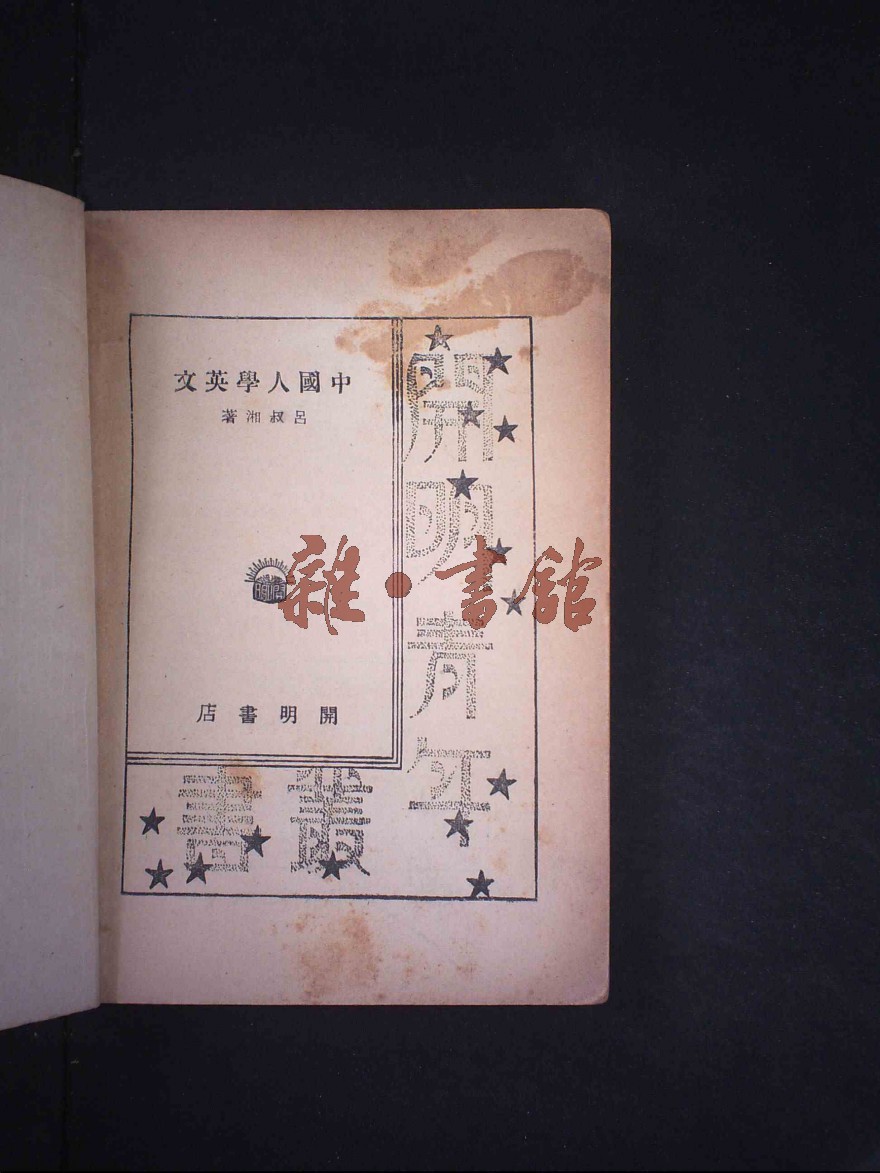 中國人學英文
呂叔湘著
開明
開明書店
開明青年
叢書
雜·書館